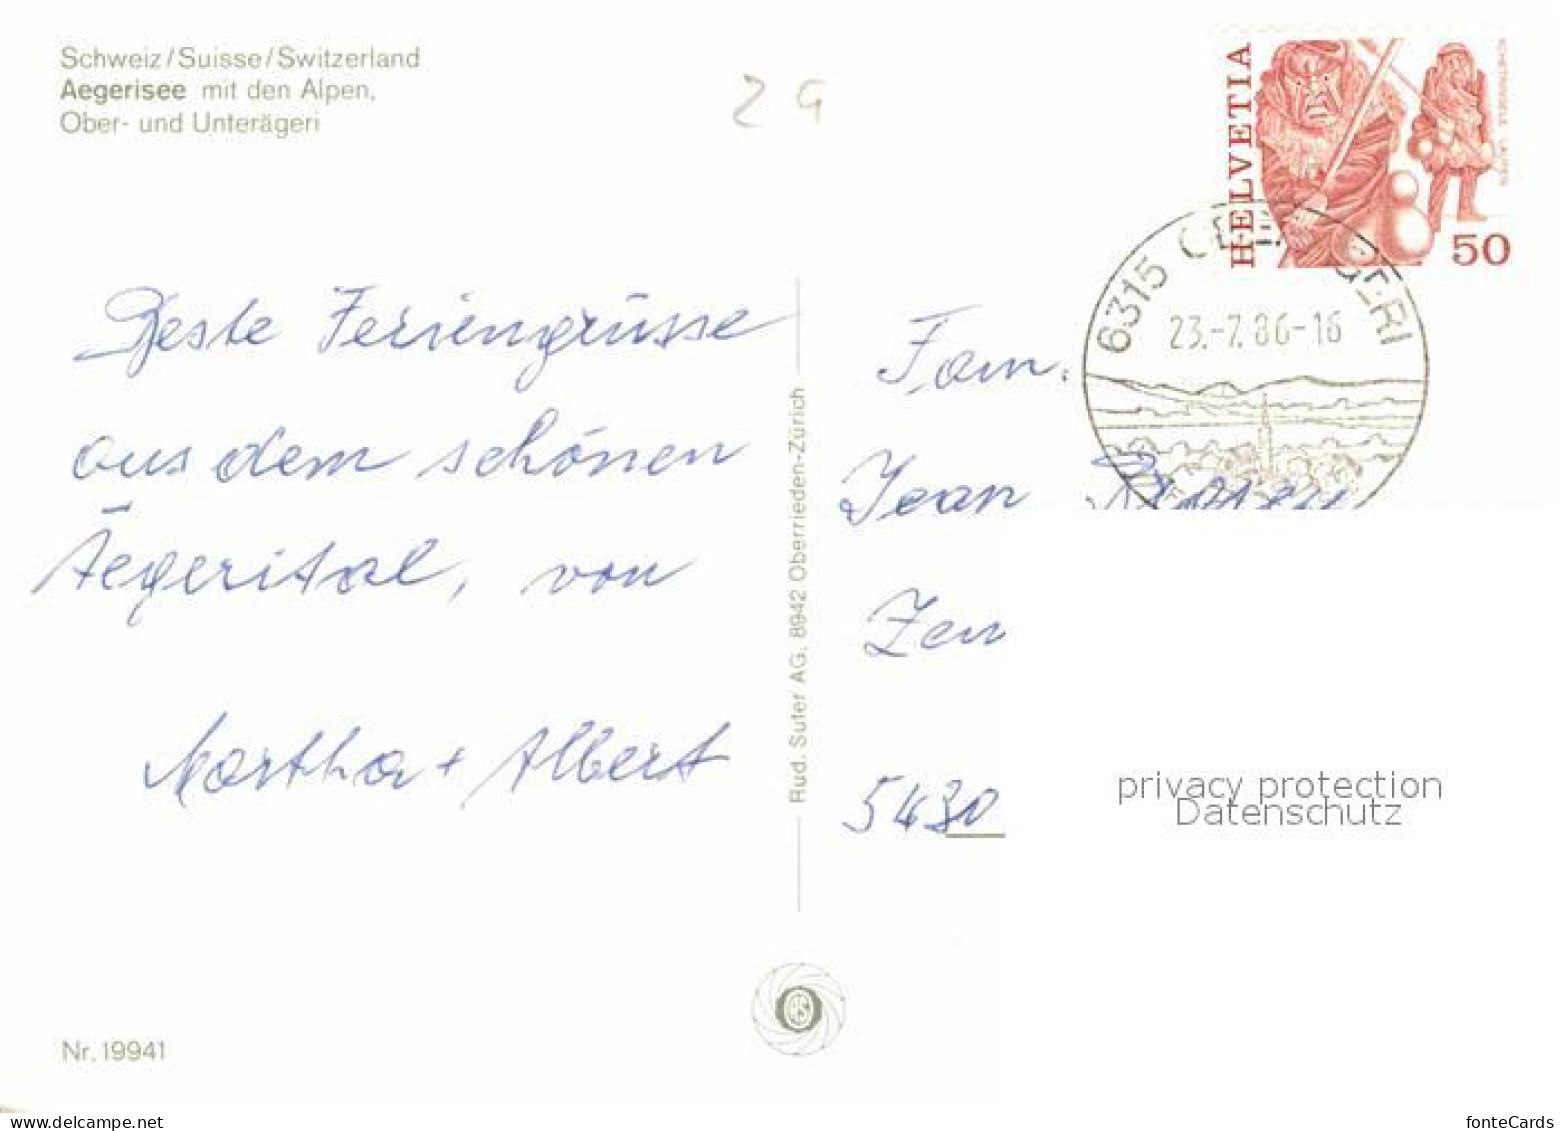 Schweiz/Suisse/Switzerland
Aegerisee mit den Alpen,
Ober- und Unterägeri
29
HELVETIA
50
6315
23.-7.86-16
Beste Feriengrüsse
aus dem schönen
Ägerital, von
Martha + Albert
Rud. Suter AG, 8942 Oberrieden-Zürich
Fam.
Jean
Zen
5430
privacy protection
Datenschutz
Nr. 19941
www.delcampe.net
fonteCards